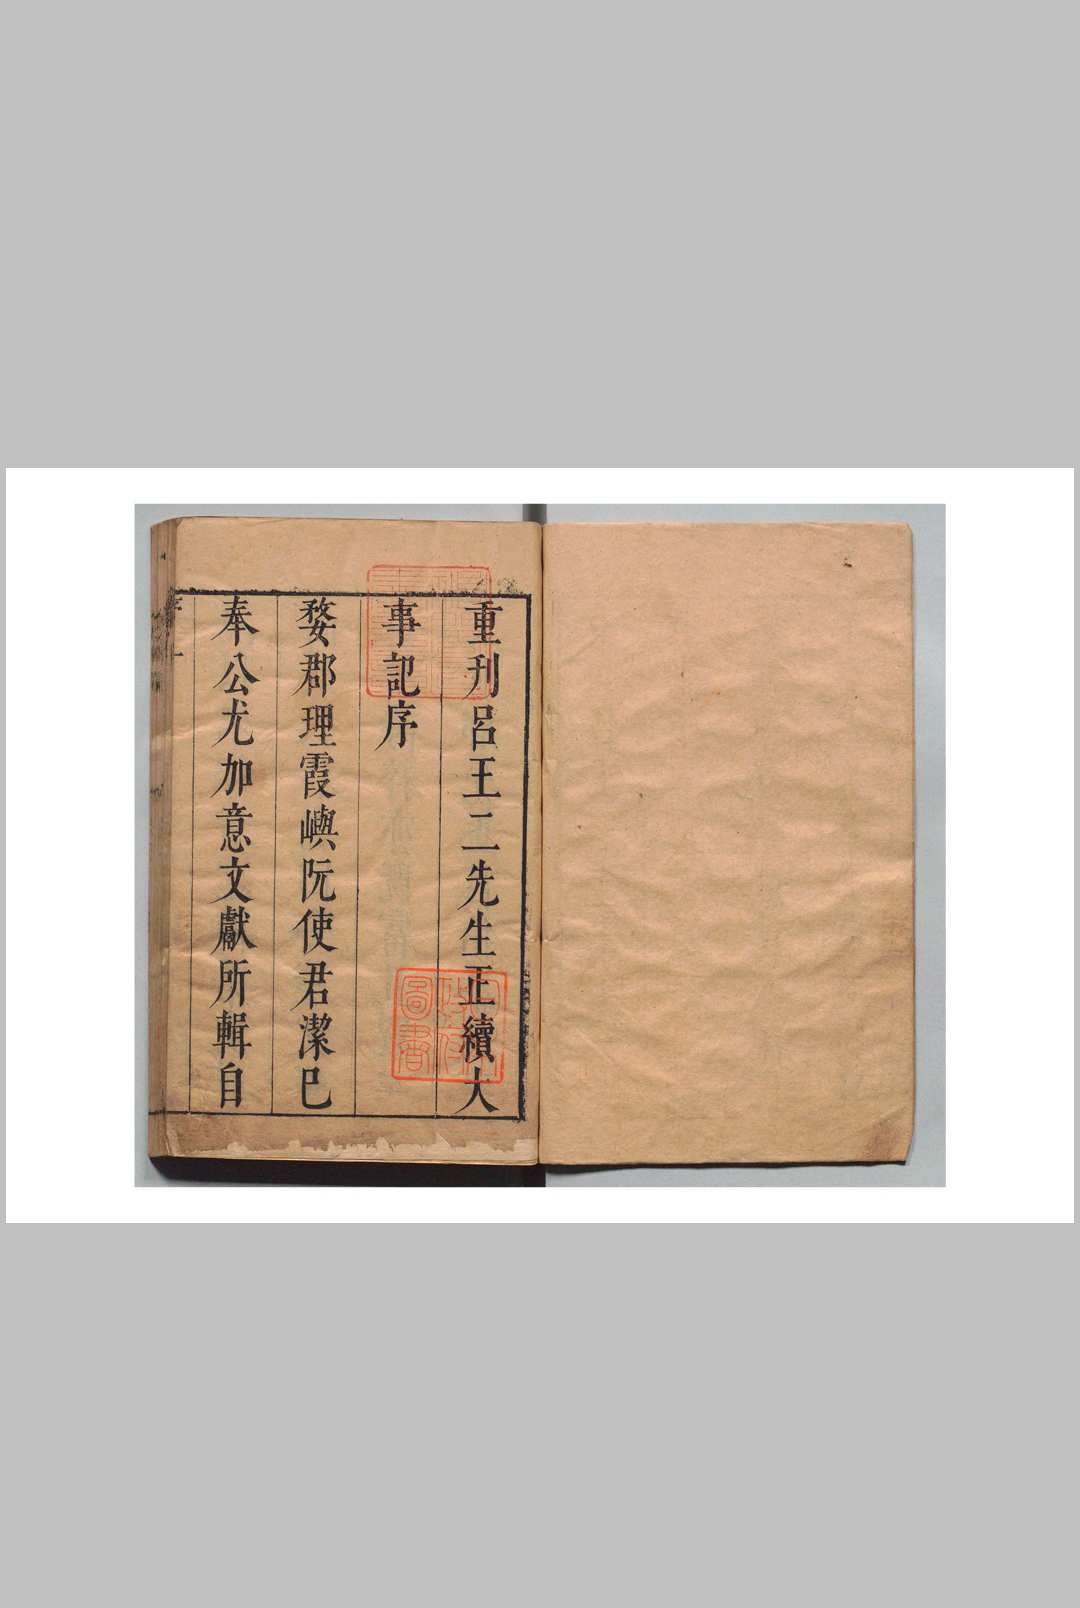 重刊呂王二先生正續大
事記序
婺郡理霞嶼阮使君潔己
奉公尤加意文獻所輯自
圖書